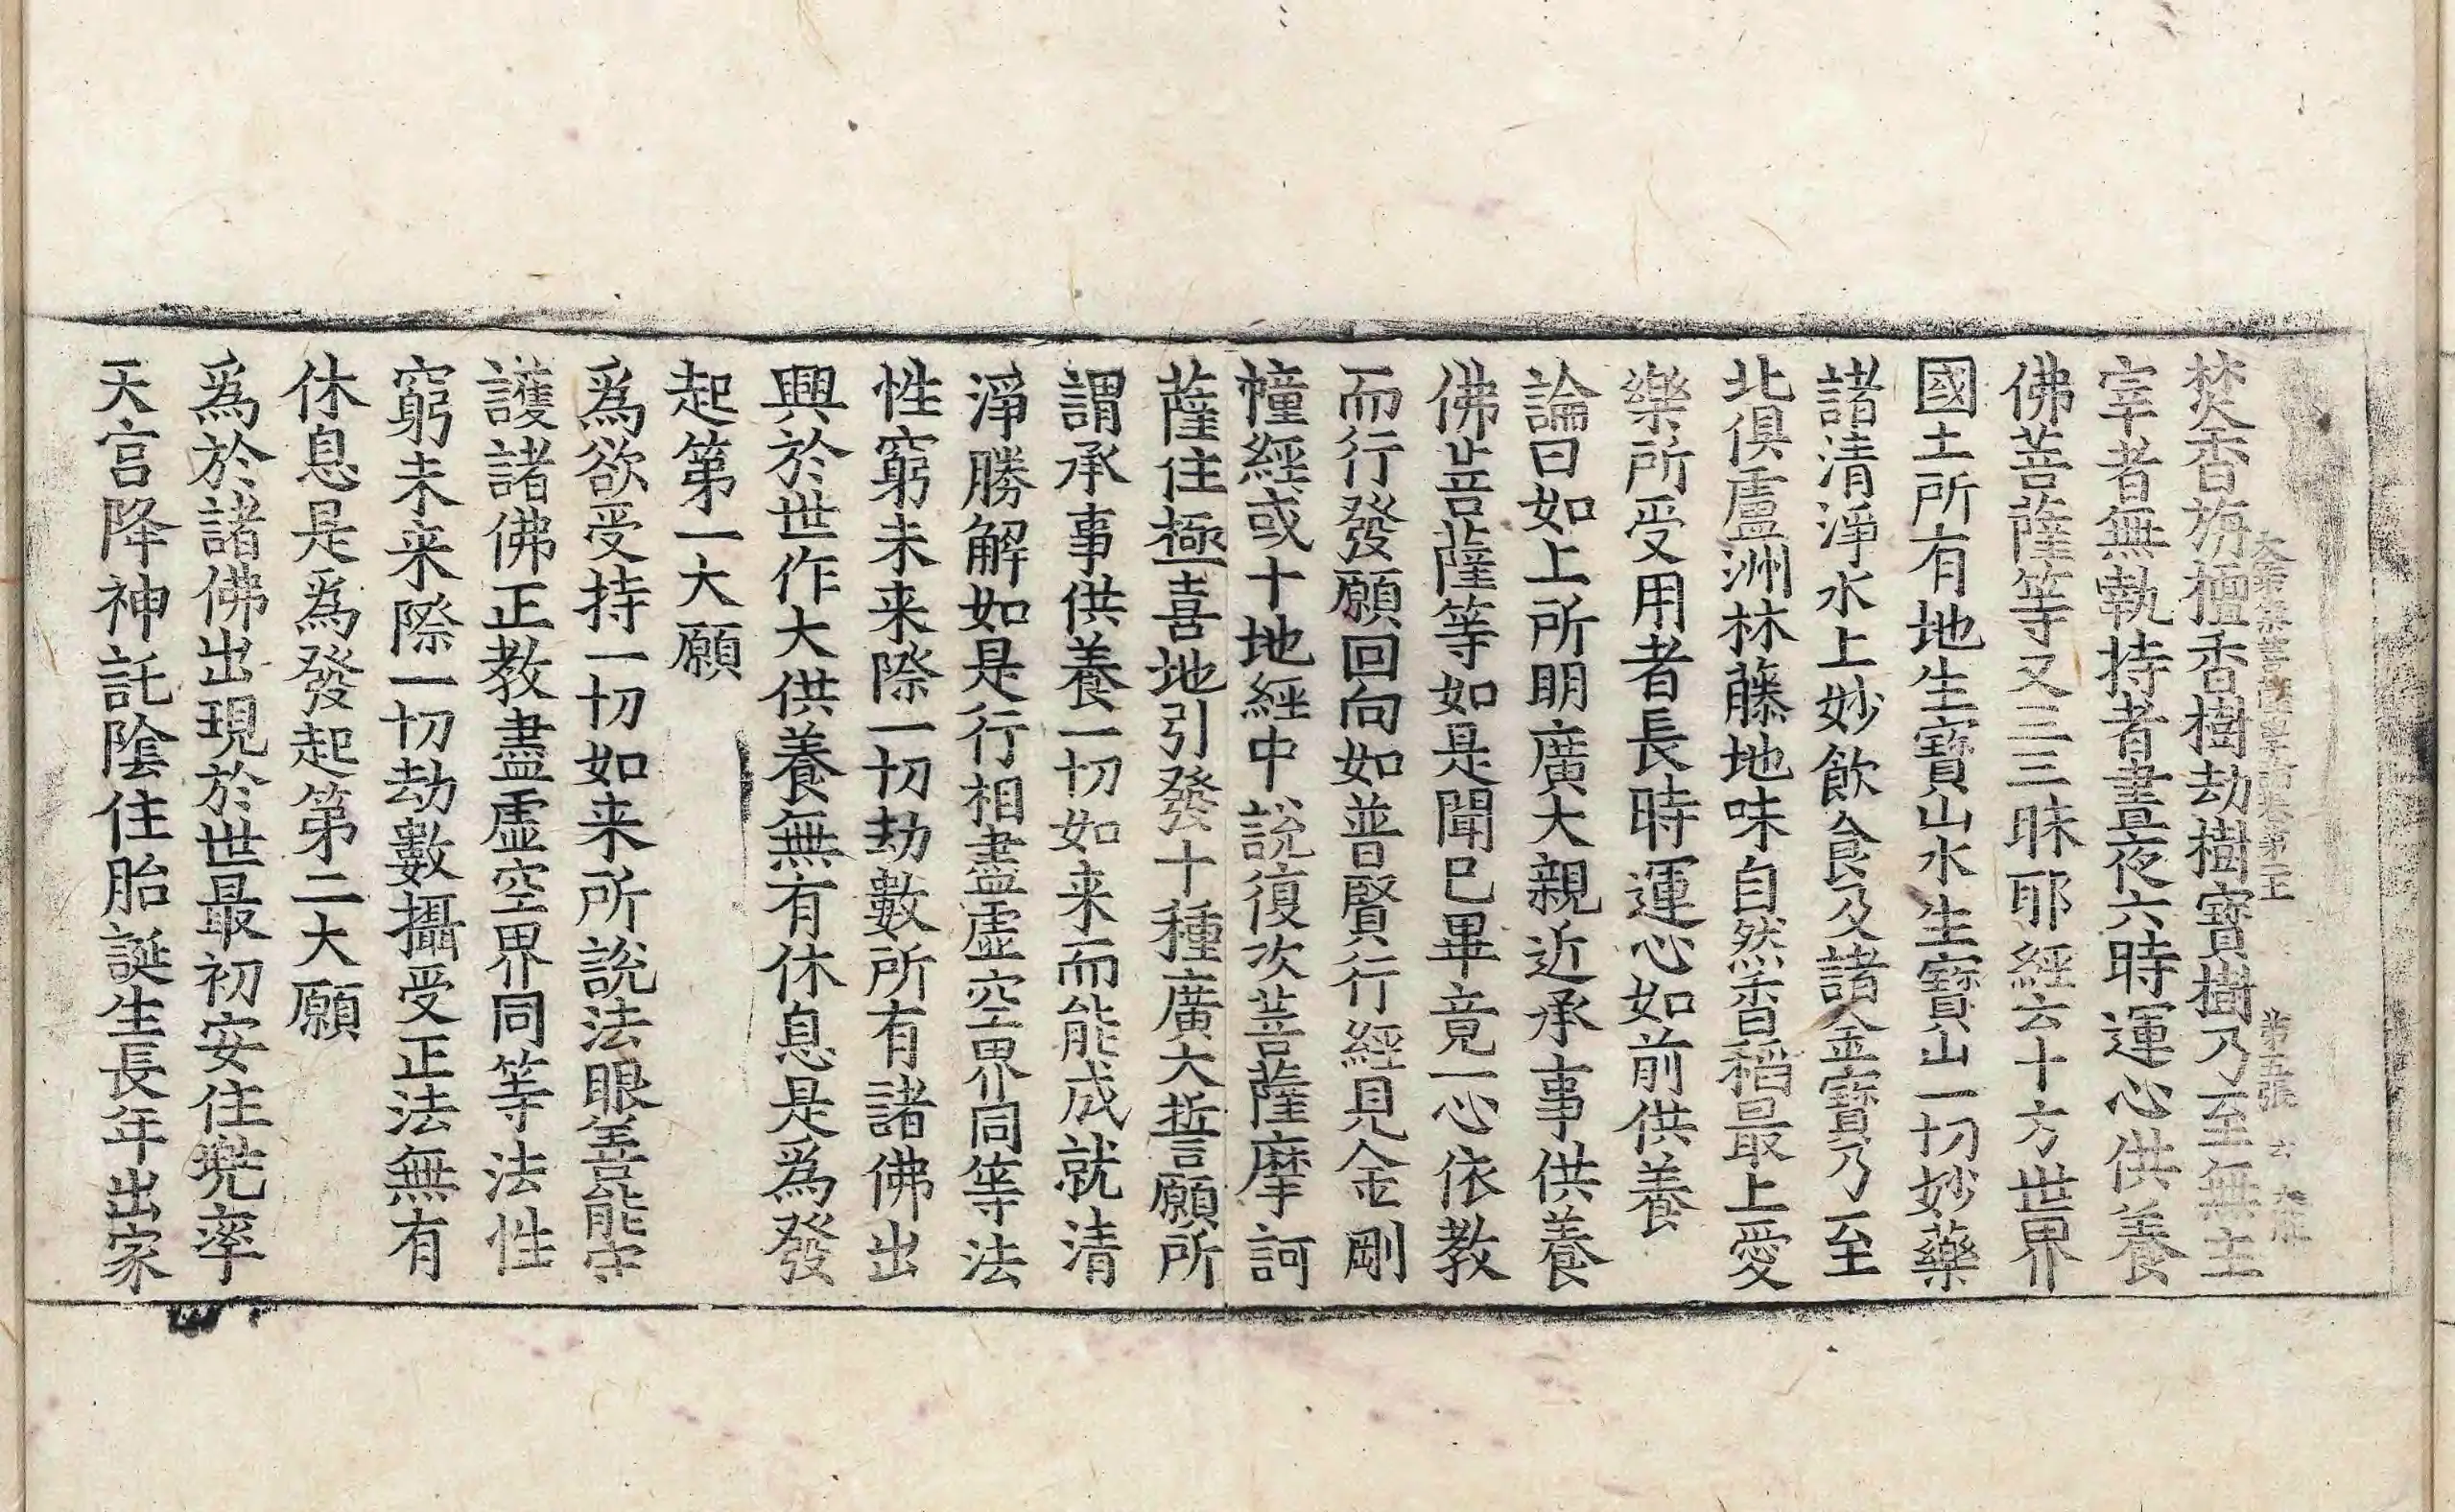 大乘集菩薩學論卷第五 第五張 去
焚香旃檀香樹劫樹寶樹乃至無主
宰者無執持者晝夜六時運心供養
佛菩薩等又三三昧耶經云十方世界
國土所有地生寶山水生寶山一切妙藥
諸清淨水上妙飲食及諸金寶乃至
北俱盧洲林藤地味自然香稻最上愛
樂所受用者長時運心如前供養
論曰如上所明廣大親近承事供養
佛菩薩等如是聞已畢竟一心依教
而行發願回向如普賢行經見金剛
幢經或十地經中說復次菩薩摩訶
薩住極喜地引發十種廣大誓願所
謂承事供養一切如来而能成就清
淨勝解如是行相盡虛空界同等法
性窮未来際一切劫數所有諸佛出
興於世作大供養無有休息是為發
起第一大願
爲欲受持一切如来所說法眼善能守
護諸佛正教盡虛空界同等法性
窮未来際一切劫數攝受正法無有
休息是爲發起第二大願
爲於諸佛出現於世最初安住兠率
天宮降神託陰住胎誕生長年出家